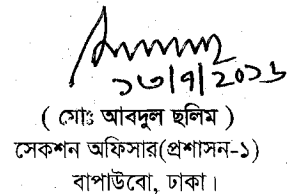 ১৩/৭/২০১৬
( মোঃ আবদুল ছলিম )
সেকশন অফিসার(প্রশাসন-১)
বাপাউবো, ঢাকা।